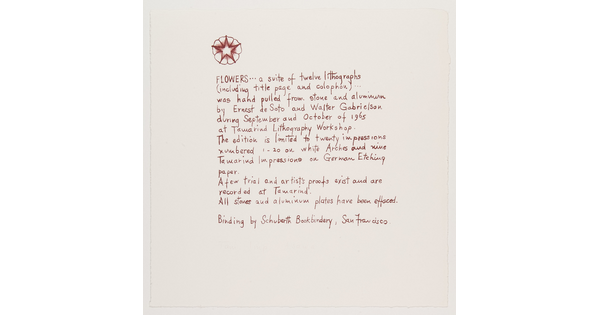 FLOWERS... a suite of twelve lithographs
(including title page and colophon)...
was hand pulled from stone and aluminum
by Ernest de Soto and Walter Gabrielson
during September and October of 1965
at Tamarind Lithography Workshop.
The edition is limited to twenty impressions
numbered 1-20 on white Arches and nine
Tamarind Impressions on German Etching
paper.
A few trial and artist's proofs exist and are
recorded at Tamarind.
All stones and aluminum plates have been effaced.
Binding by Schuberth Bookbindery, San Francisco